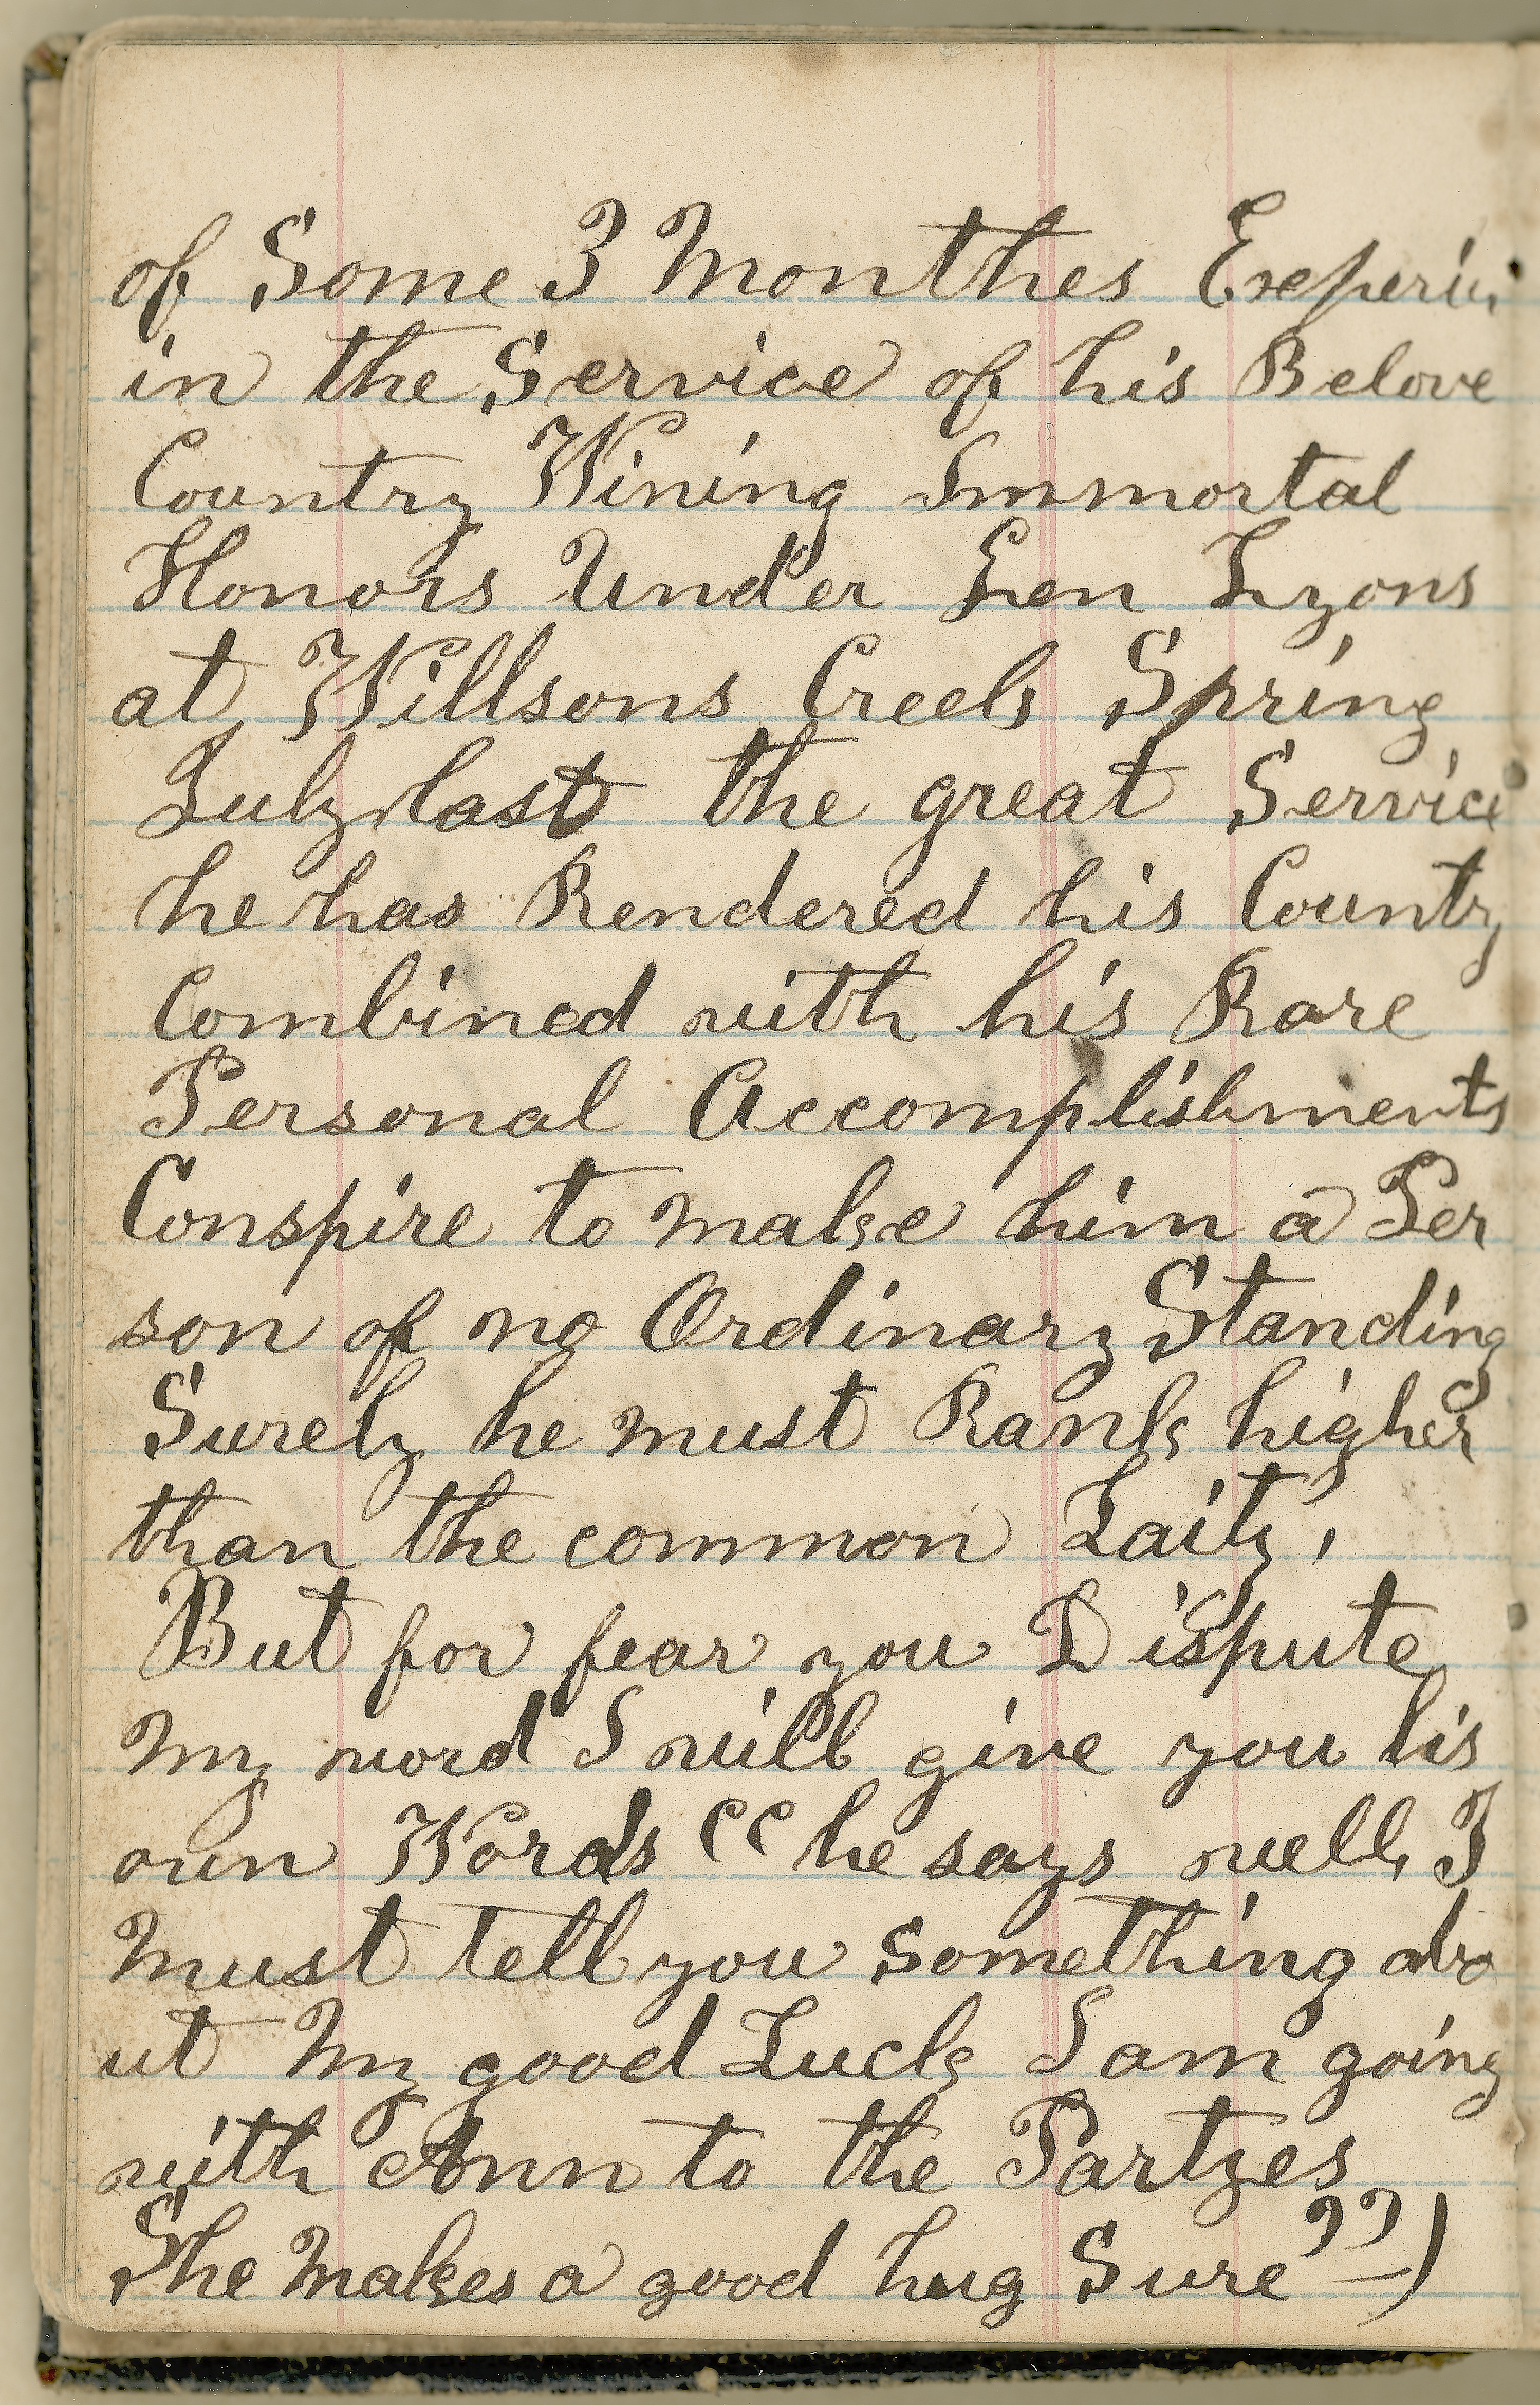 of Some 3 Monthes Experin
in the Service of his Belove
Country Wining Immortal
Honors Under Gen Lyons
at Willsons Creek Spring
July last the great Service
he has Rendered his Country
Combined with his Rare
Personal Accomplishments
Conspire to make him a Per
son of no Ordinary Standing
Surely he must Rank higher
than the common Laity,
But for fear you Dispute
my word I will give you his
own Words “ he says well, I
must tell you something abo
ut my good Luck I am going
with Ann to the Partyes
She makes a good hug Sure” –)